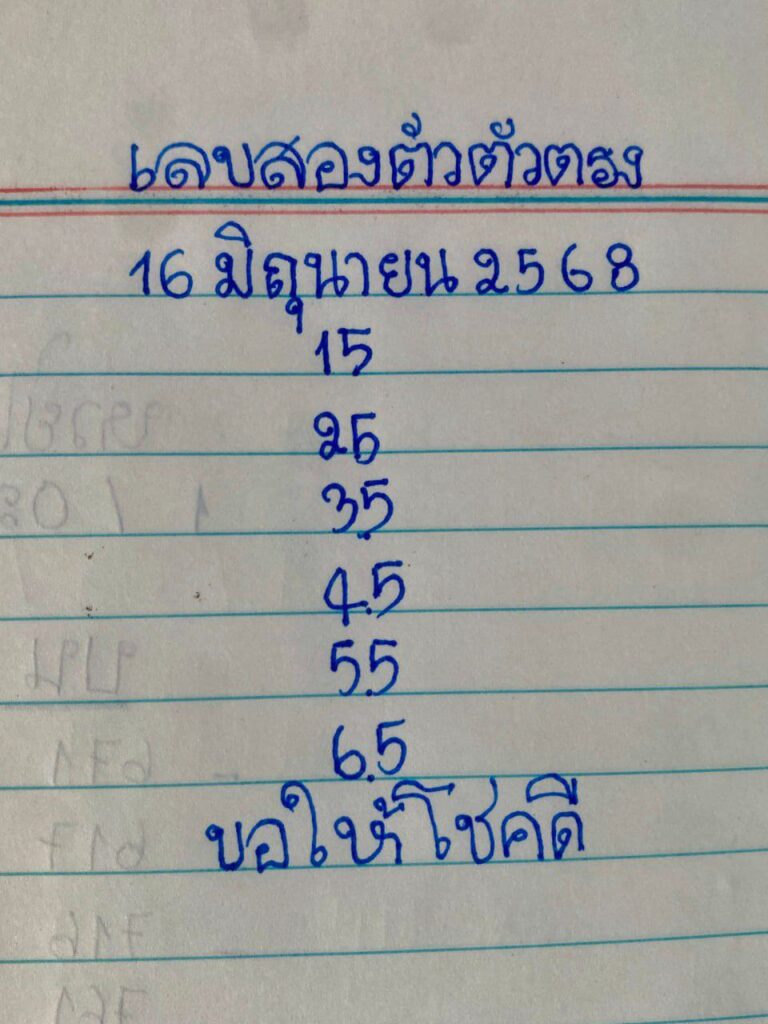 เลขสองตัวตัวตรง
16 มิถุนายน 2568
15
25
35
45
55
65
ขอให้โชคดี